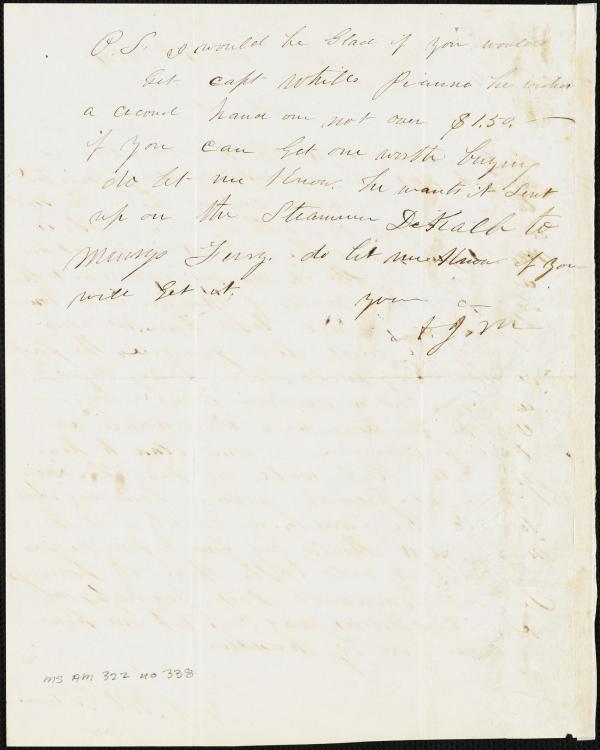 P.S. I would be Glad if you would
Get capt Whites Pianna he wishes
a cecond hand one not over $1.50. —
if you can Get one worth buying
do let me Know. he wants it Sent
up on the Steammer DeKalb to
Ferry. do let me Know if you
will Get it.
your
A. J. M
MS AM 322 NO 338